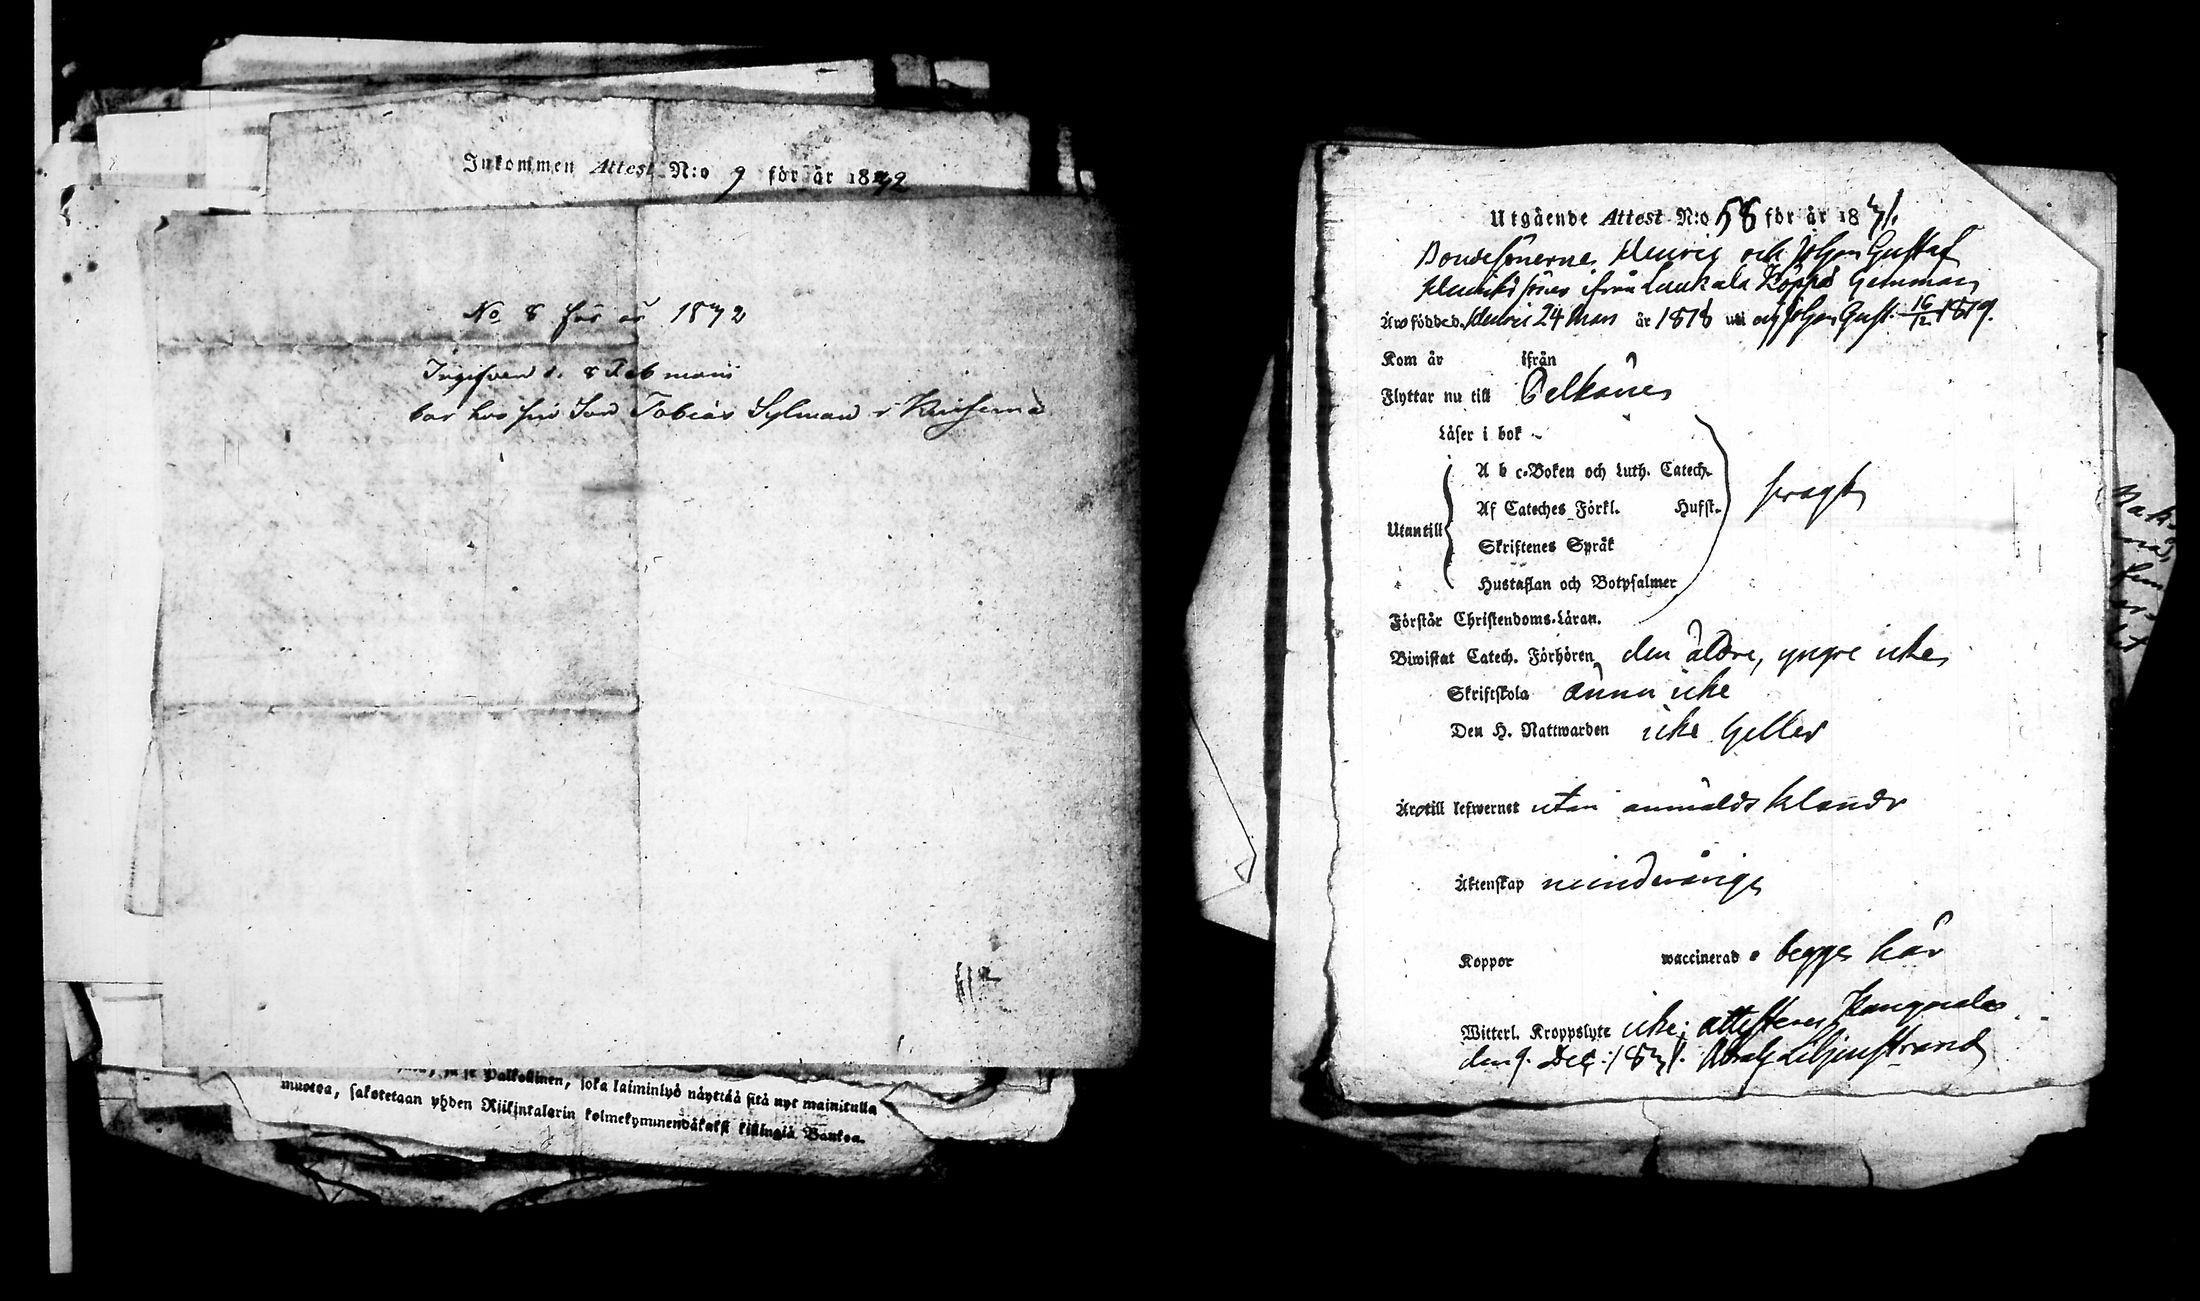 Inkommen Attest N:o 9 för år 1872
No 8 för år 1872
Ingifven d. 8 Feb
bor hos sin Son Tobias Sylman i
Palkollinen, joka laiminlyö näyttää sitä nyt mainitulla
muotoa, sakotetaan yhden Riikintalarin kolmekymmendäkaksi killingiä Bankoa.
Utgående Attest N:o 58 för år 1871.
Bondesönerne Henric och Johan Gustaf
ifrån Laukala
Är född d. Henric 24 Mars år 1818 och Johan Gust. 16/12 1819.
Kom år ifrån
Flyttar nu till Pelkäne
Läser i bok
A b c-Boken och Luth. Catech.
Af Cateches Förkl. Husst.
Utantill
Skriftenes Språk
Hustaflan och Botpsalmer
Förstår Christendoms-Läran.
Biwistat Catech. Förhören den äldre, yngre icke
Skriftskola ännu icke
Den H. Nattwarden icke heller
Äro till lefwernet utan anmäldt klander
Äktenskap minderårige
Koppor waccinerad e begge här
Witterl. Kroppslyte icke; attesterer Kangasala
den 9. Dec. 1871. Liljenstrand